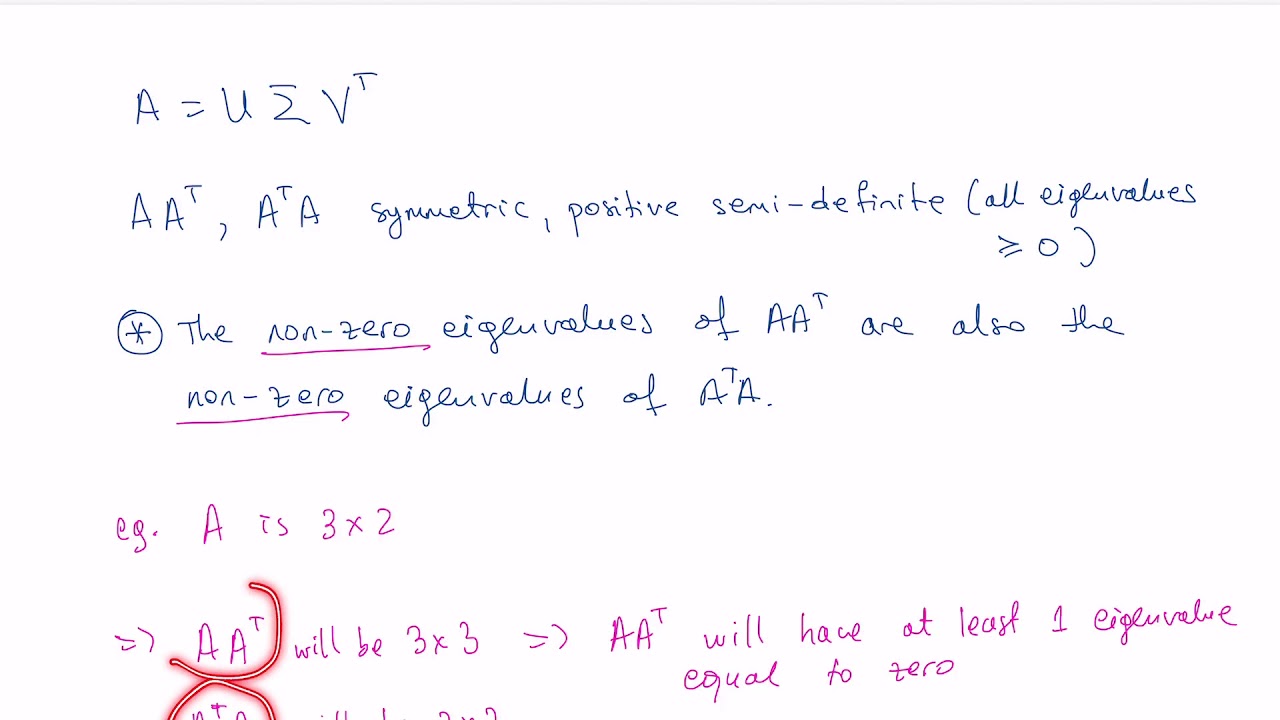 A = U Σ Vᵀ
AAᵀ, AᵀA symmetric, positive semi-definite (all eigenvalues
≥ 0)
* The non-zero eigenvalues of AAᵀ are also the
non-zero eigenvalues of AᵀA.
eg. A is 3×2
=> AAᵀ will be 3×3 => AAᵀ will have at least 1 eigenvalue
equal to zero
AᵀA will be 2×2